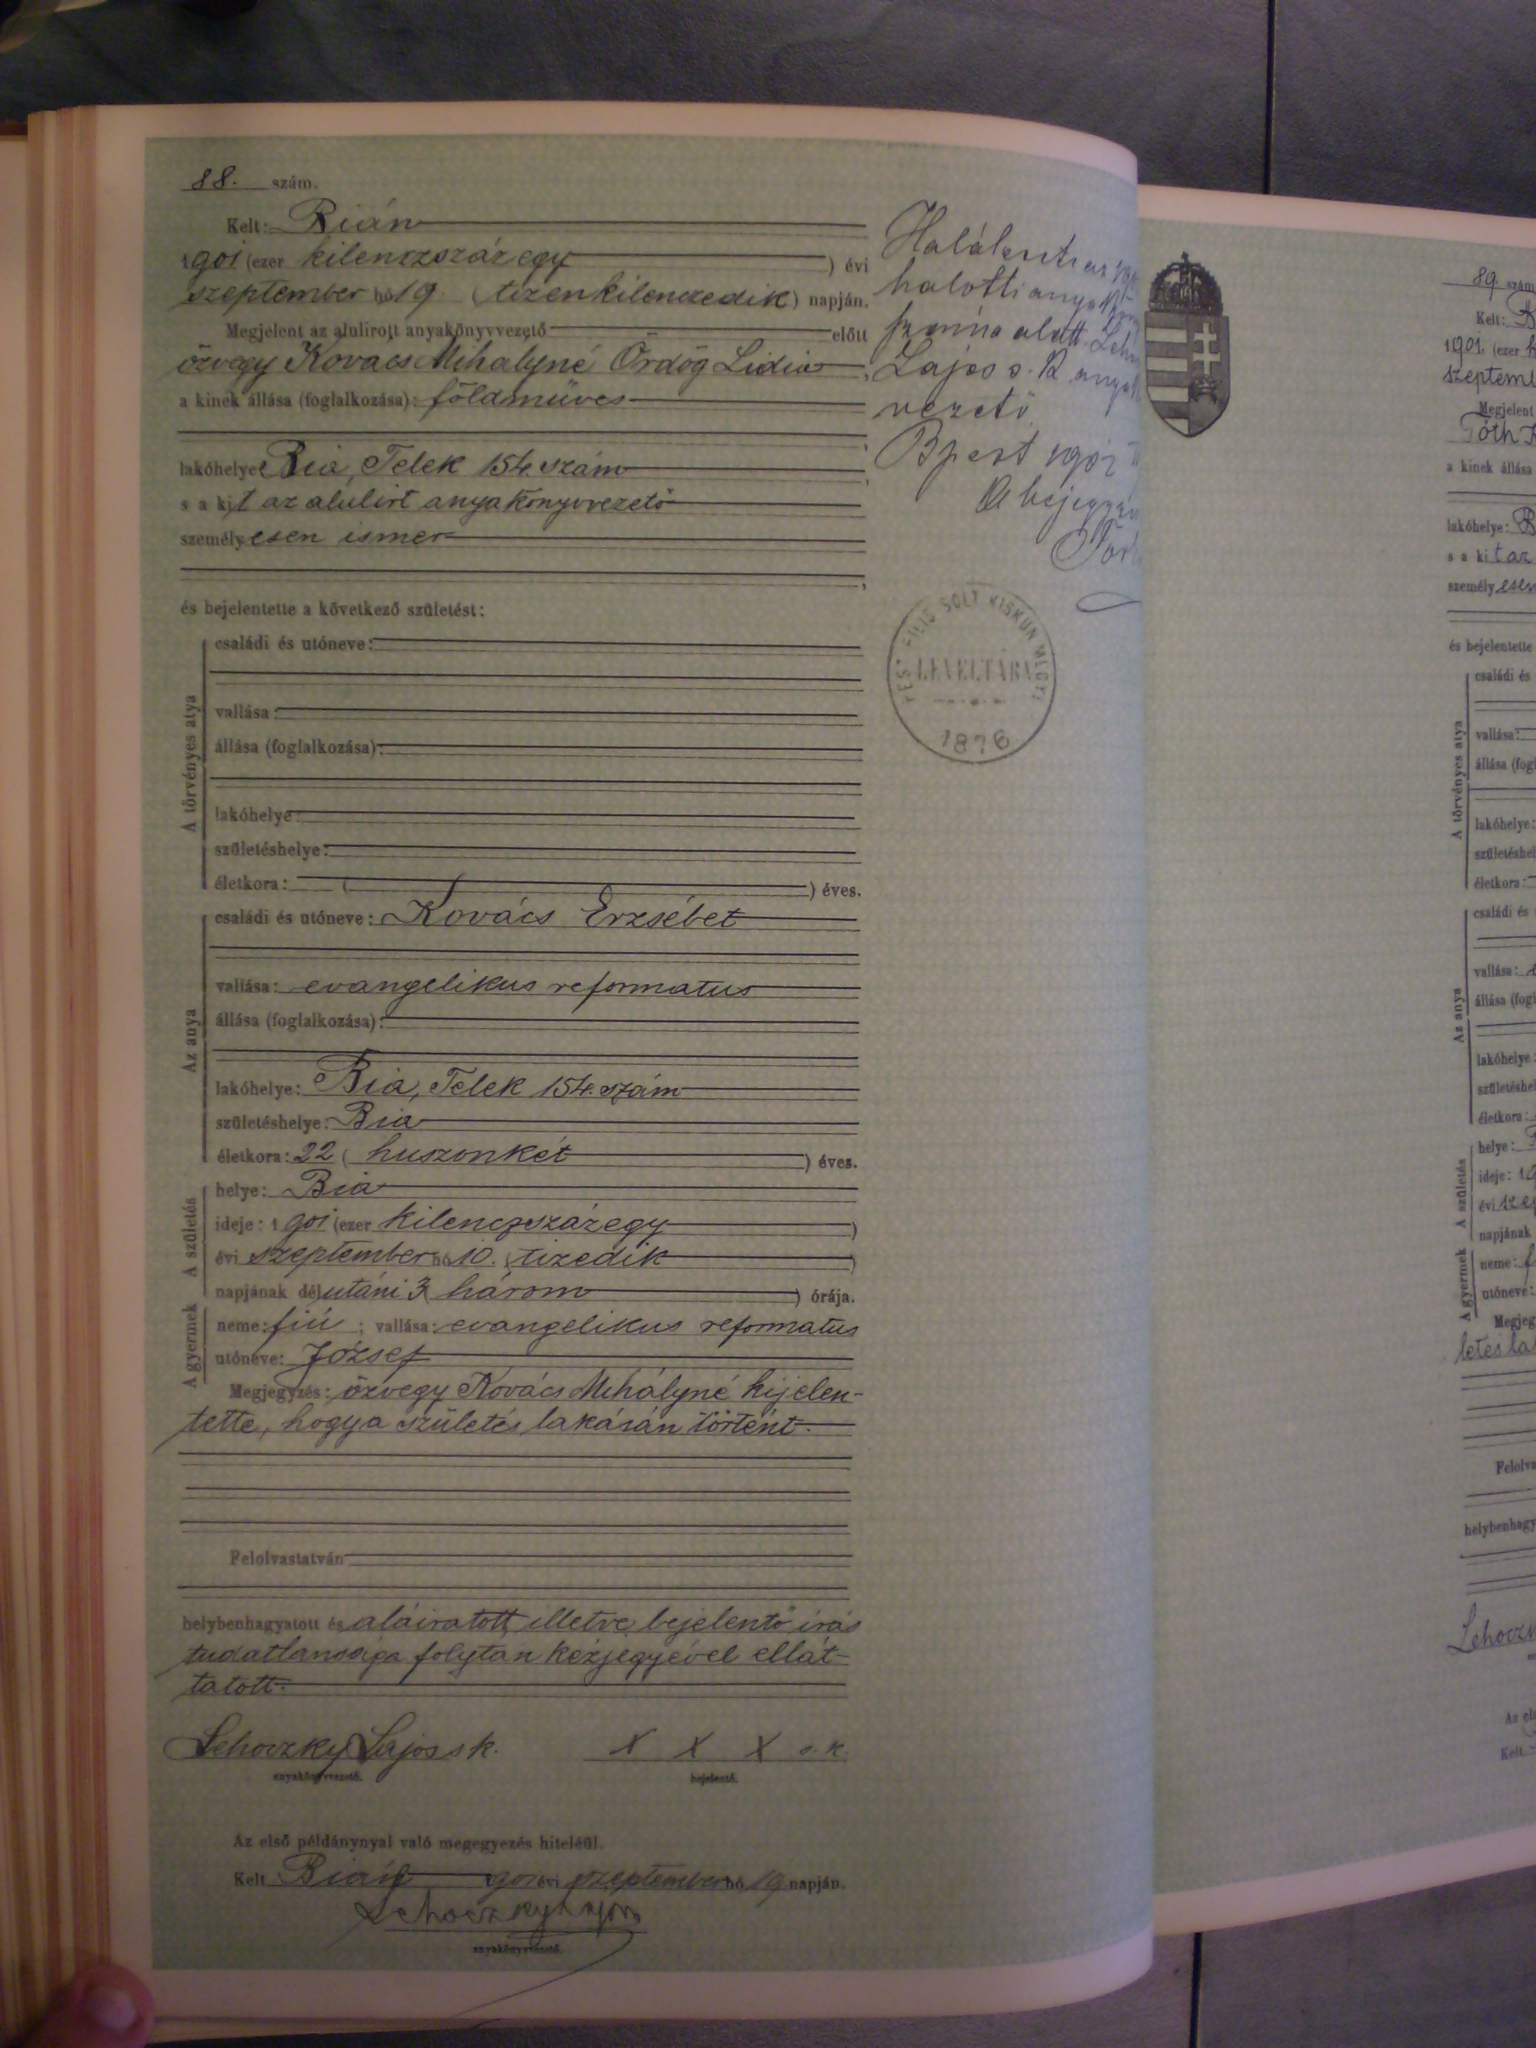 88. szám.
Kelt: Bián
1901 (ezer kilenczszázegy) évi
szeptember hó 19. (tizenkilenczedik) napján.
Megjelent az alulirott anyakönyvvezető előtt
özvegy Kovács Mihályné Ördög Lidia
a kinek állása (foglalkozása): földmüves
lakóhelye Bia, Telek 154. szám
s a kit az alulirt anyakönyvvezető
személyesen ismer
és bejelentette a következő születést:
A törvényes atya
családi és utóneve:
vallása:
állása (foglalkozása):
lakóhelye:
születéshelye:
életkora: ( ) éves.
Az anya
családi és utóneve: Kovács Erzsébet
vallása: evangelikus reformatus
állása (foglalkozása):
lakóhelye: Bia, Telek 154. szám
születéshelye: Bia
életkora: 22 (huszonkét) éves.
A születés
helye: Bia
ideje: 1901 (ezer kilenczszázegy)
évi szeptember hó 10. (tizedik)
napjának délutáni 3 (három) órája.
A gyermek
neme: fiú; vallása: evangelikus reformatus
utóneve: József
Megjegyzés: özvegy Kovács Mihályné kijelen-
tette, hogy a születés lakásán történt.
Felolvastatván
helybenhagyatott és aláiratott, illetve bejelentő irás
tudatlansága folytan kézjegyével ellát-
tatott.
Lehoczky Lajos s.k. X X X s.k.
anyakönyvvezető. bejelentő.
Az első példánynyal való megegyezés hiteléül.
Kelt Bián 901 évi szeptember hó 19 napján.
Lehoczky Lajos
anyakönyvvezető.
halotti
száma alatt.
Lajos s. k.
vezető
Bpest
A
PEST PILIS SOLT KISKUN MEGYE
LEVELTÁRA
1876
89. szám
Kelt: B
1901. (ezer k
szeptem
Megjelent
Tóth
a kinek állása
lakóhelye: B
s a kit az
személyesen
és bejelentette
A törvényes atya
családi és
vallása:
állása (fogl
lakóhelye:
születéshel
életkora:
Az anya
családi és
vallása:
állása (fogl
lakóhelye:
születéshel
életkora:
A születés
helye:
ideje: 19
évi szep
napjának
A gyermek
neme: f
utóneve:
Megjeg
Felolva
helybenhagy
Lehoczk
Az els
Kelt